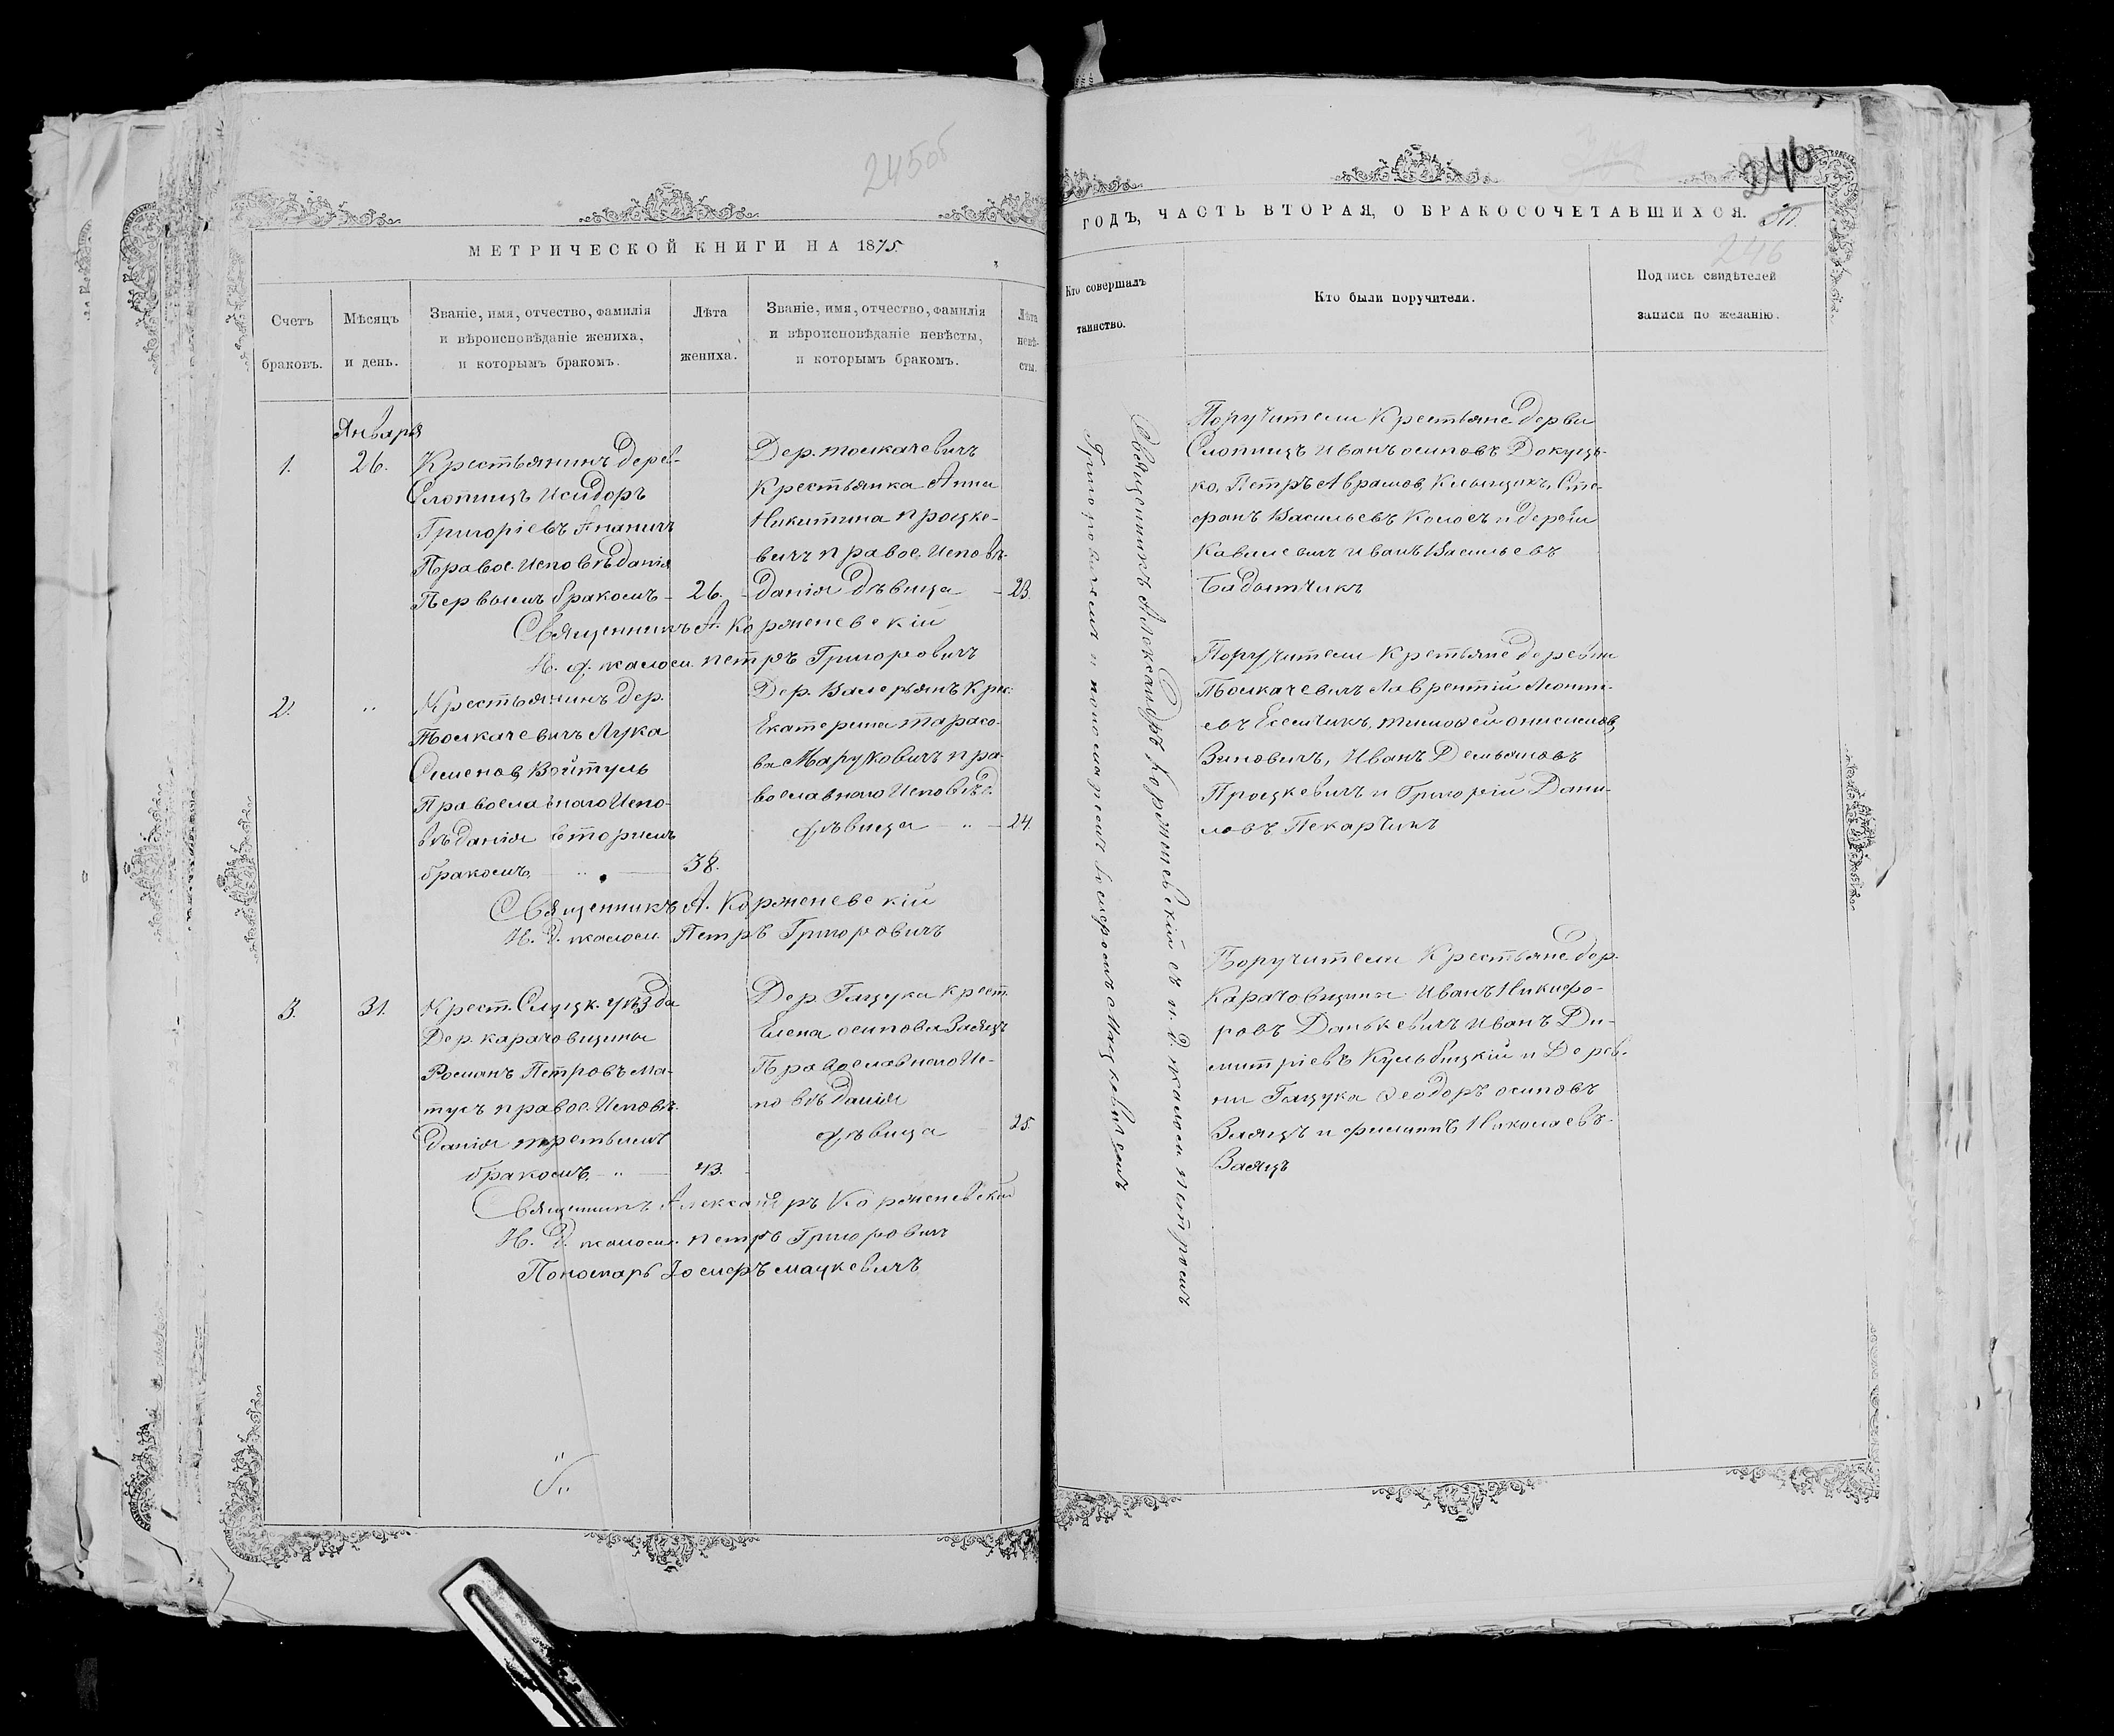 245об
МЕТРИЧЕСКОЙ КНИГИ НА 1875
Счетъ браковъ.
Мѣсяцъ и день.
Званіе, имя, отчество, фамилія
и вѣроисповѣданіе жениха,
и которымъ бракомъ.
Лѣта
жениха.
Званіе, имя, отчество, фамилія
и вѣроисповѣданіе невѣсты,
и которымъ бракомъ.
Лѣта
невѣ-
сты.
Января
1.
26.
Крестьянинъ дерев-
Слопищъ Исидоръ
Григоріевъ Ананичъ
Правос. Исповѣданія
Первымъ бракомъ -
26.
Дер. толкачевичъ
Крестьянка Анна
Никитина процке-
вичъ правос. Исповѣ-
данія дѣвица
- 23.
Священникъ А. Корженевскій
И. д. псалом. петръ Григоровичъ
2.
"
Крестьянинъ дер.
Толкачевичъ Лука
Семеновъ Войтуль
Православного Испо-
вѣданія вторымъ
бракомъ,
38.
Дер. Валерьянъ Крес.
Екатерина тарасо-
ва Марукович пра-
вославного Исповѣд.
дѣвица " -
24.
Священникъ А. Корженевскій
И. д. псалом. Петръ Григоровичъ
3.
31.
Крест. Слуцк. уѣзда
Дер. карачовщины
Романъ Петровъ Ма-
тусъ правос. Исповѣ-
данія третьимъ
бракомъ - "
43.
Дер. Гацука крест.
Елена осипова Заяцъ
Православного Ис-
повѣданія
дѣвица
25.
Священникъ Александръ Корженевскій
И. д. псалом. петръ Григоровичъ
Пономарь Іосифъ мацкевичъ
246
ГОДЪ, ЧАСТЬ ВТОРАЯ, О БРАКОСОЧЕТАВШИХСЯ.
246
Кто совершалъ
таинство.
Кто были поручители.
Подпись свидѣтелей
записи по желанію.
Священникъ Александръ Корженевскій съ и. д. псалом. петромъ
Григоровичемъ и пономаремъ Іосифомъ Мацкевичемъ
Поручители Крестьяне дервни
Слопищъ Иванъ осиповъ Докуць-
ко, Петръ Аврамовъ, Клындюкъ, Сте-
фанъ Васильевъ Колосъ и дерев.
Ковалевичъ иванъ Васильевъ
Бадытчикъ
Поручители Крестьяне деревни
Толкачевичъ Лаврентій Леонтi-
евъ Есьмчикъ, тимофей онисимовъ,
Зиновичъ, Иванъ Демьяновъ
Процкевичъ и Григорій Дани-
ловъ Пекарчикъ
Поручители Крестьяне дер.
Карачовщины Иванъ Никифо-
ровъ Данькевичъ иванъ Ди-
митріевъ Кульбицкій и Дерев-
ни Гацука Феодоръ осиповъ
Заяцъ и филиппъ Николаевъ.
Заяцъ